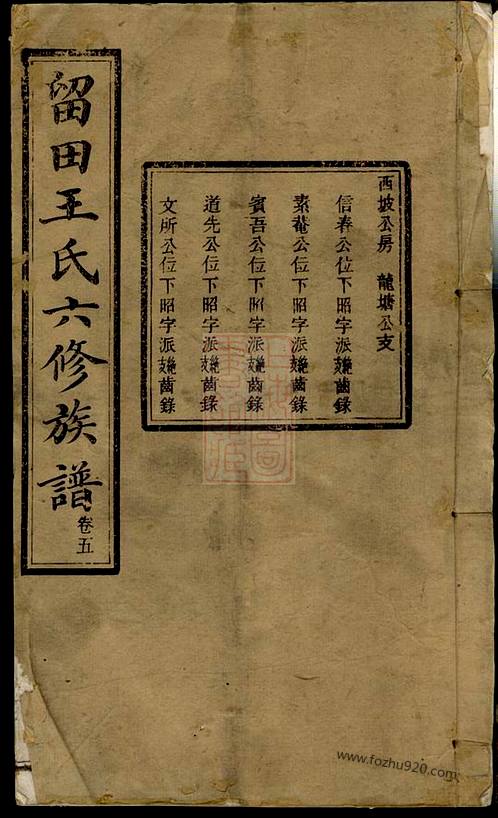 留田王氏六修族譜
卷五
西坡公房 龍塘公支
信春公位下昭字派絕支齒錄
素菴公位下昭字派絕支齒錄
賓吾公位下昭字派絕支齒錄
道先公位下昭字派絕支齒錄
文所公位下昭字派絕支齒錄
www.fozhu920.com